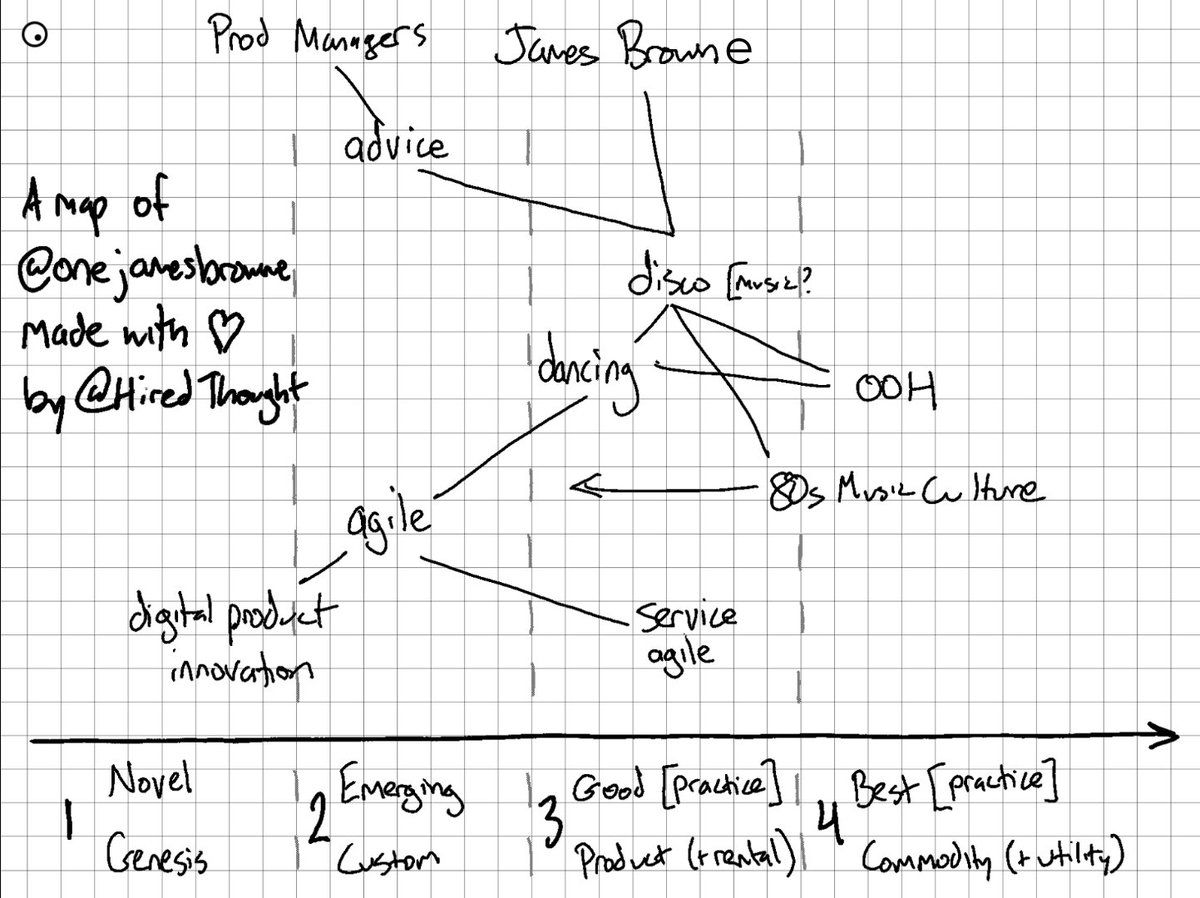 Prod Managers
James Browne
advice
A map of
@onejamesbrowne
Made with ♡
by @HiredThought
disco [music?
dancing
OOH
80s Music Culture
agile
digital product
innovation
service
agile
1
Novel
Genesis
2
Emerging
Custom
3
Good [practice]
Product (+rental)
4
Best [practice]
Commodity (+utility)